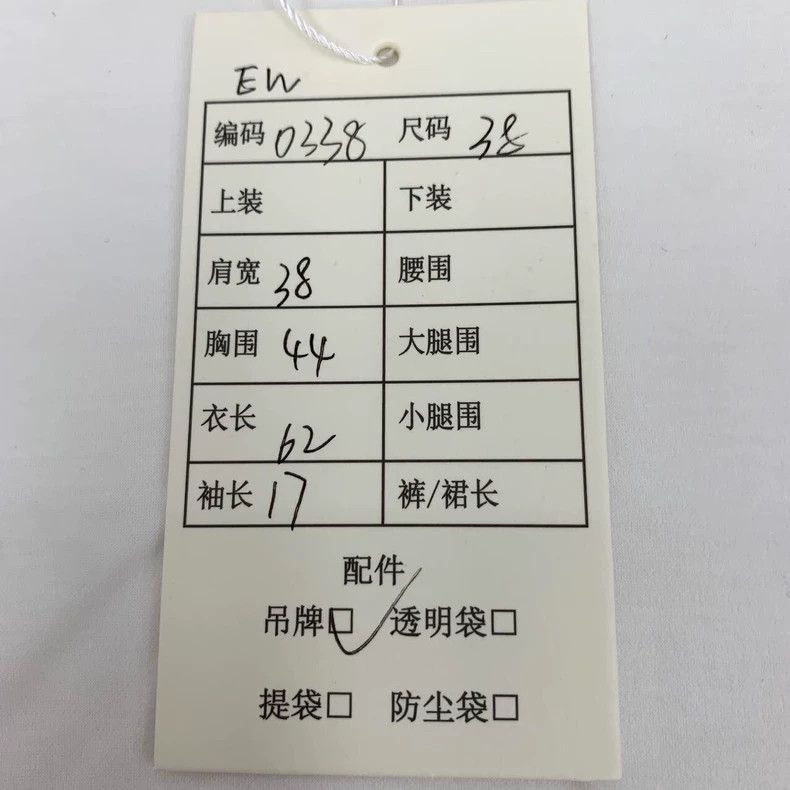 EW
编码 0338 尺码 38
上装 下装
肩宽 38 腰围
胸围 44 大腿围
衣长 62 小腿围
袖长 17 裤/裙长
配件
吊牌☑ 透明袋□
提袋□ 防尘袋□